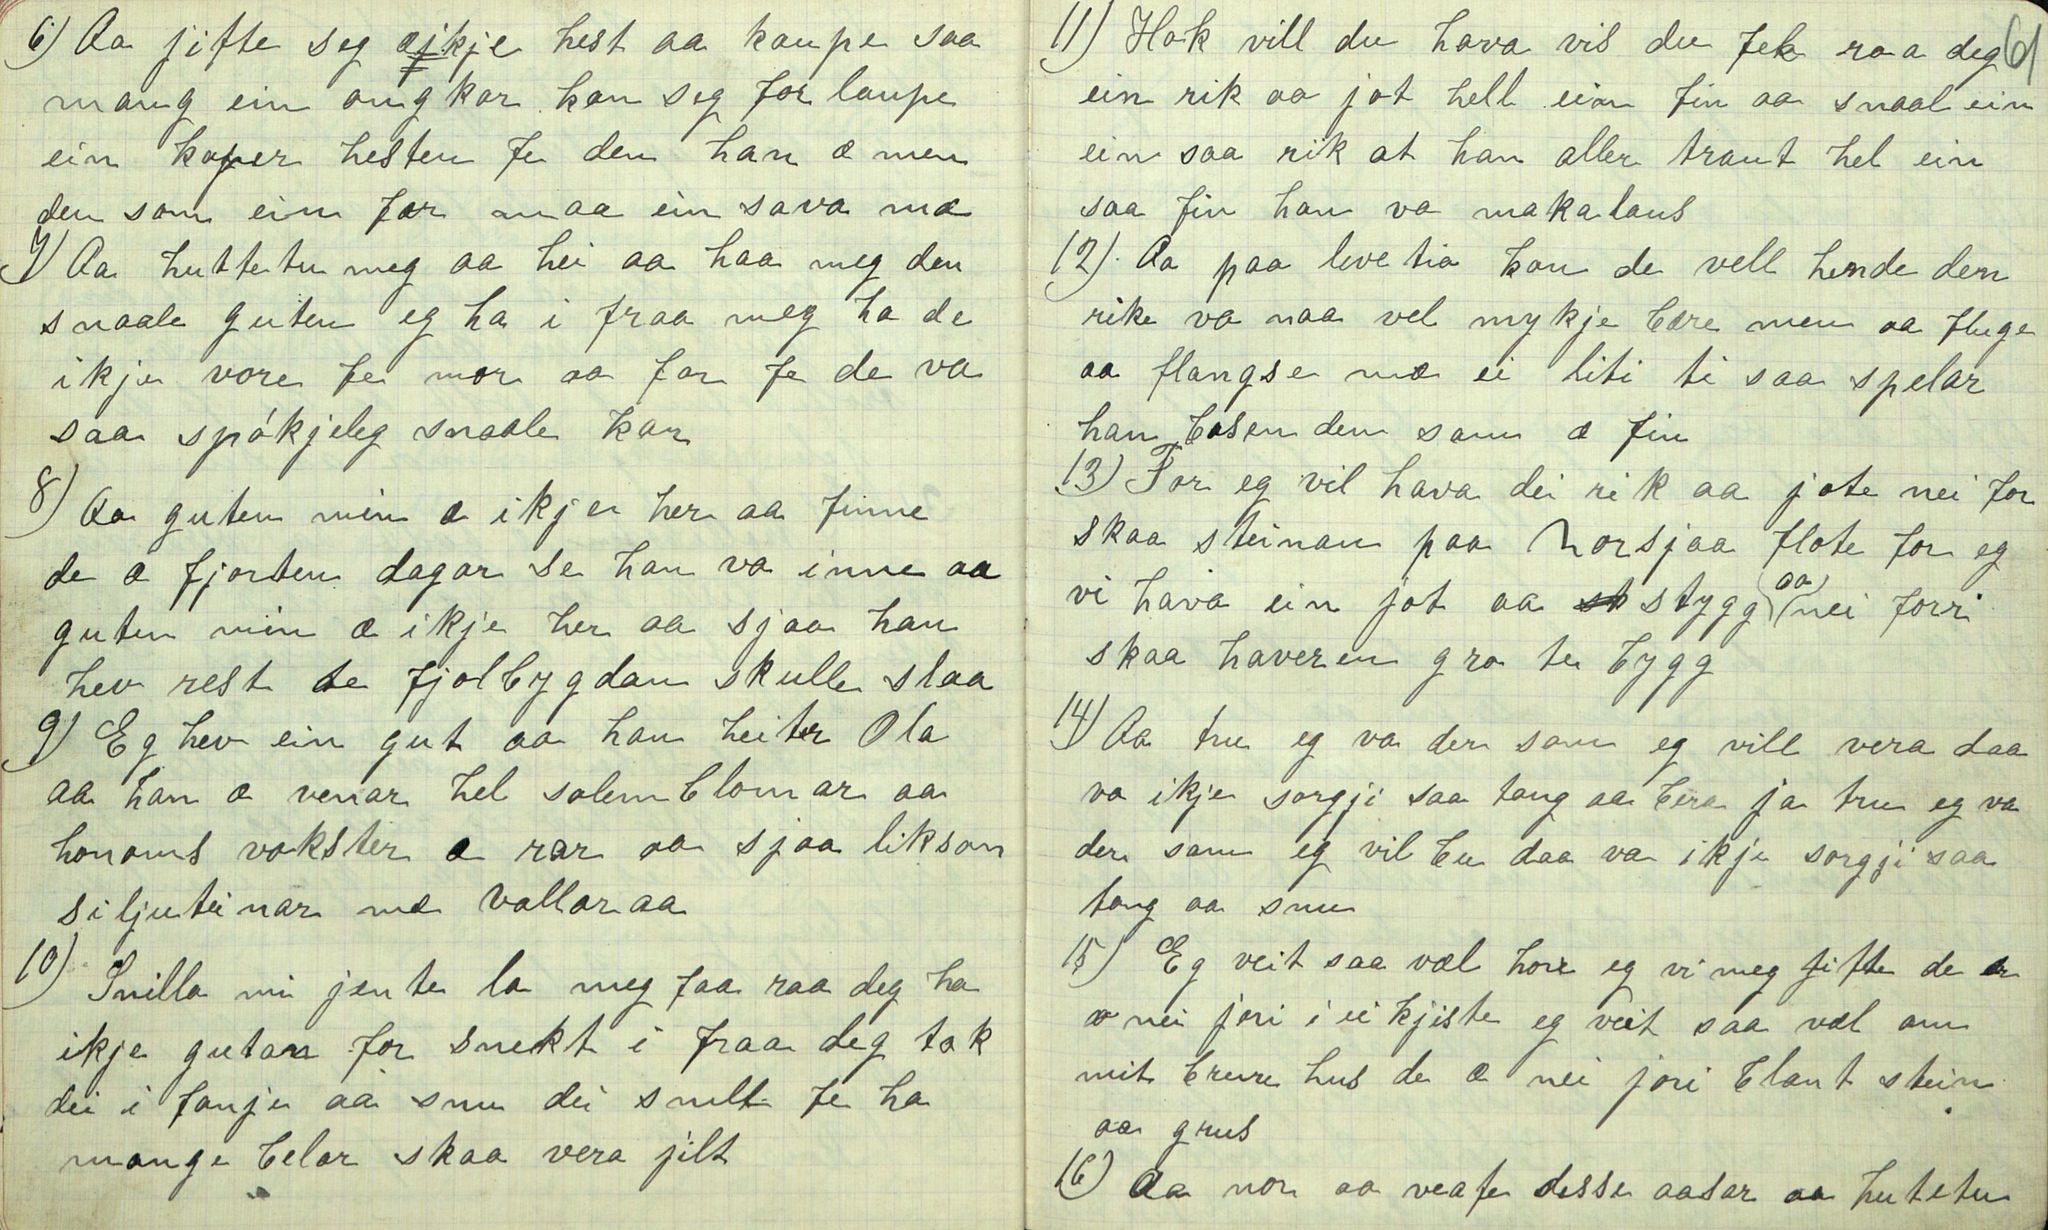 6) Aa jifte seg æ ikje hest aa kaupe saa
mang ein ongkar kan seg for laupe
ein kaper hesten fe den han æ men
den som ein fær maa ein sava mæ
7) Aa huttetu meg aa hei aa haa meg den
snaale guten eg ha i fraa meg ha de
ikje vore fe mor aa far fe de va
saa spókjeleg snaale kar
8) Aa guten min æ ikje her aa finne
de æ fjorten dagar se han va inne aa
guten min æ ikje her aa sjaa han
hev rest te fjolbygdan skulle slaa
9) Eg hev ein gut aa han heiter Ola
aa han æ venar hel solem blomar aa
honoms vokster æ rar aa sjaa likson
siljuteinar mæ Vallaraa
10) Snilla mi jente la meg faa raa deg ha
ikje gutan for snekt i fraa deg tak
dei i fanje aa snu dei snilt fe ha
mange belar skaa vera jilt
11) Hok vill du hava vis du fek raa deg 61
ein rik aa jot hell ein fin aa snaal ein
ein saa rik at han aller traut hel ein
saa fin han va makalaus
12) Aa paa levetia kan de vell hende den
rike va naa vel mykje bære men aa fluge
aa flangse mæ ei liti ti saa spelar
han basen den som æ fin
13) For eg vil hava dei rik aa jote nei for
skaa steinan paa Norsjaa flote for eg
vi hava ein jot aa stygg (aa) nei forri
skaa haveren gro te bygg
14) Aa tru eg va der som eg vill vera daa
va ikje sorgji saa tong aa bera ja tru eg va
der som eg vil bu daa va ikje sorgji saa
tong aa snu
15) Eg veit saa væl horr eg vi meg jifte de er
nei jori i ei kjiste eg veit saa væl om
mit brure hus de æ nei jori blant stein
aa grus
16) Aa nor aa veafe desse aasar aa hutetu